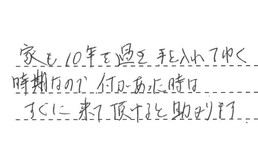 家も10年を過ぎ手を入れてゆく
時期なので 何かあった時は
すぐに来て頂けると助かります